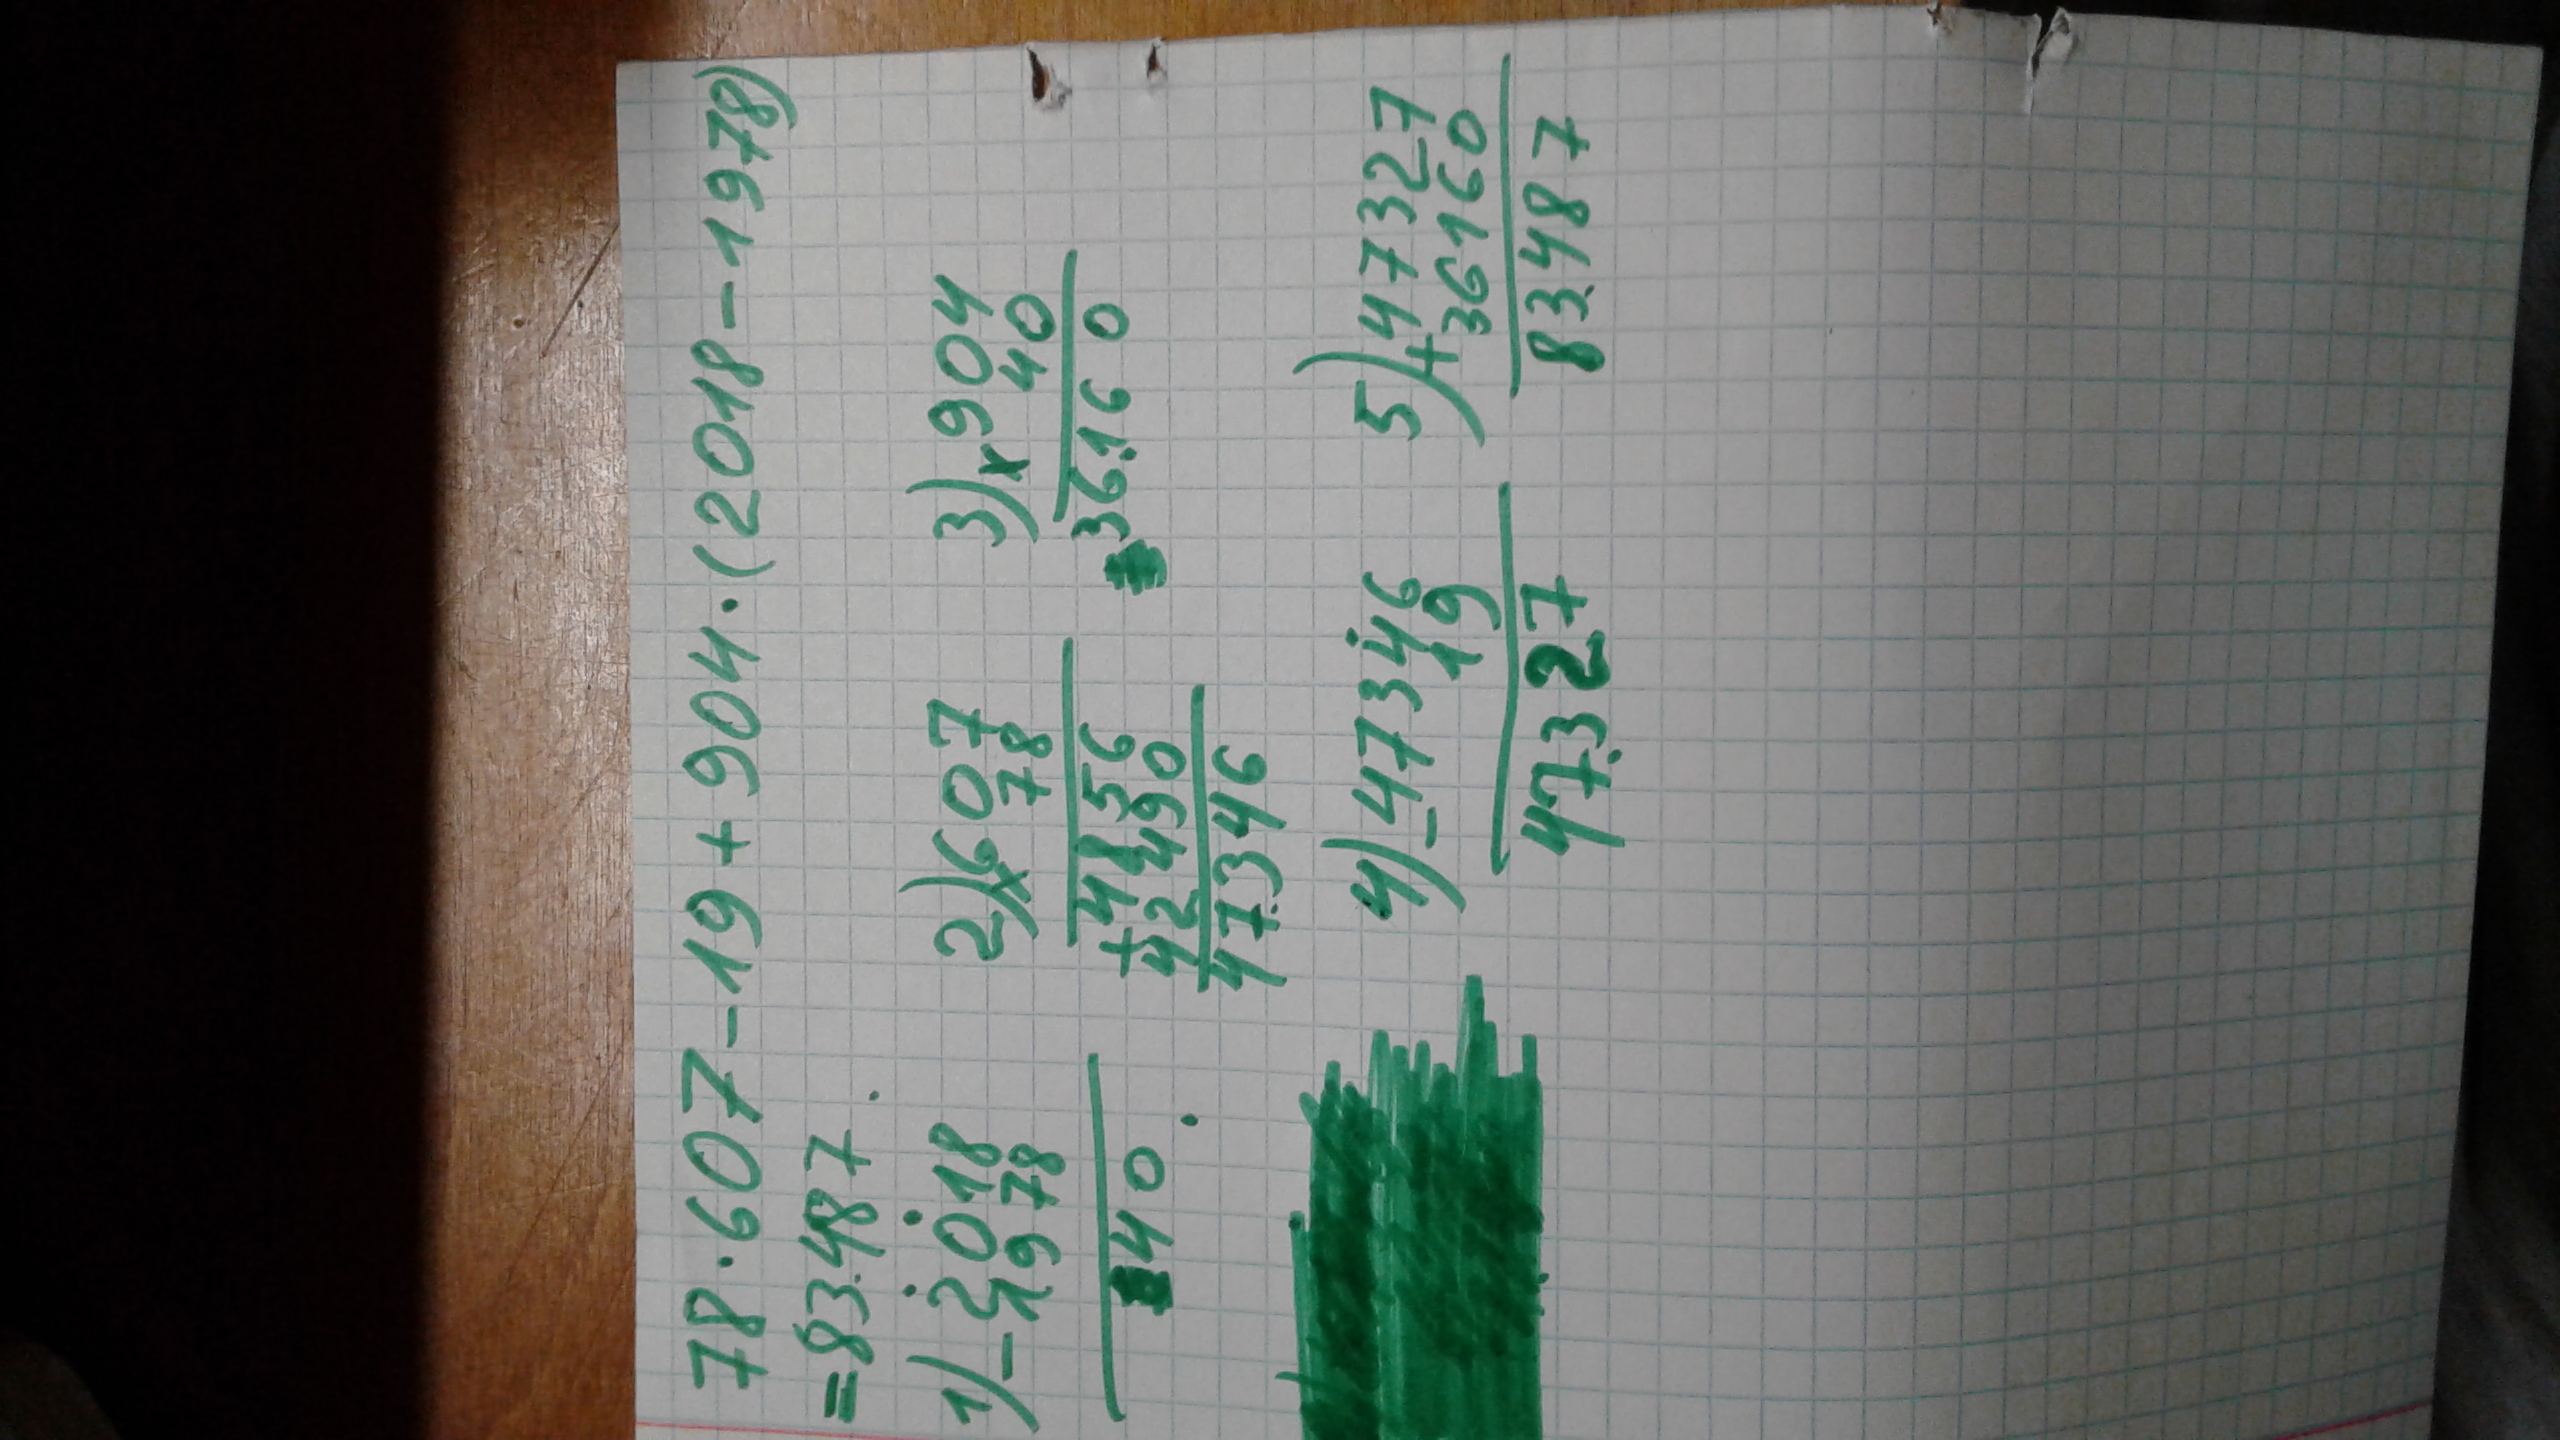 78·607-19+904·(2018-1978)
=83.487
1) -2018
1978
40
2) x607
78
+4856
42490
47.346
3) x904
40
36.160
4) -47346
19
47.327
5) +47327
36160
83.487